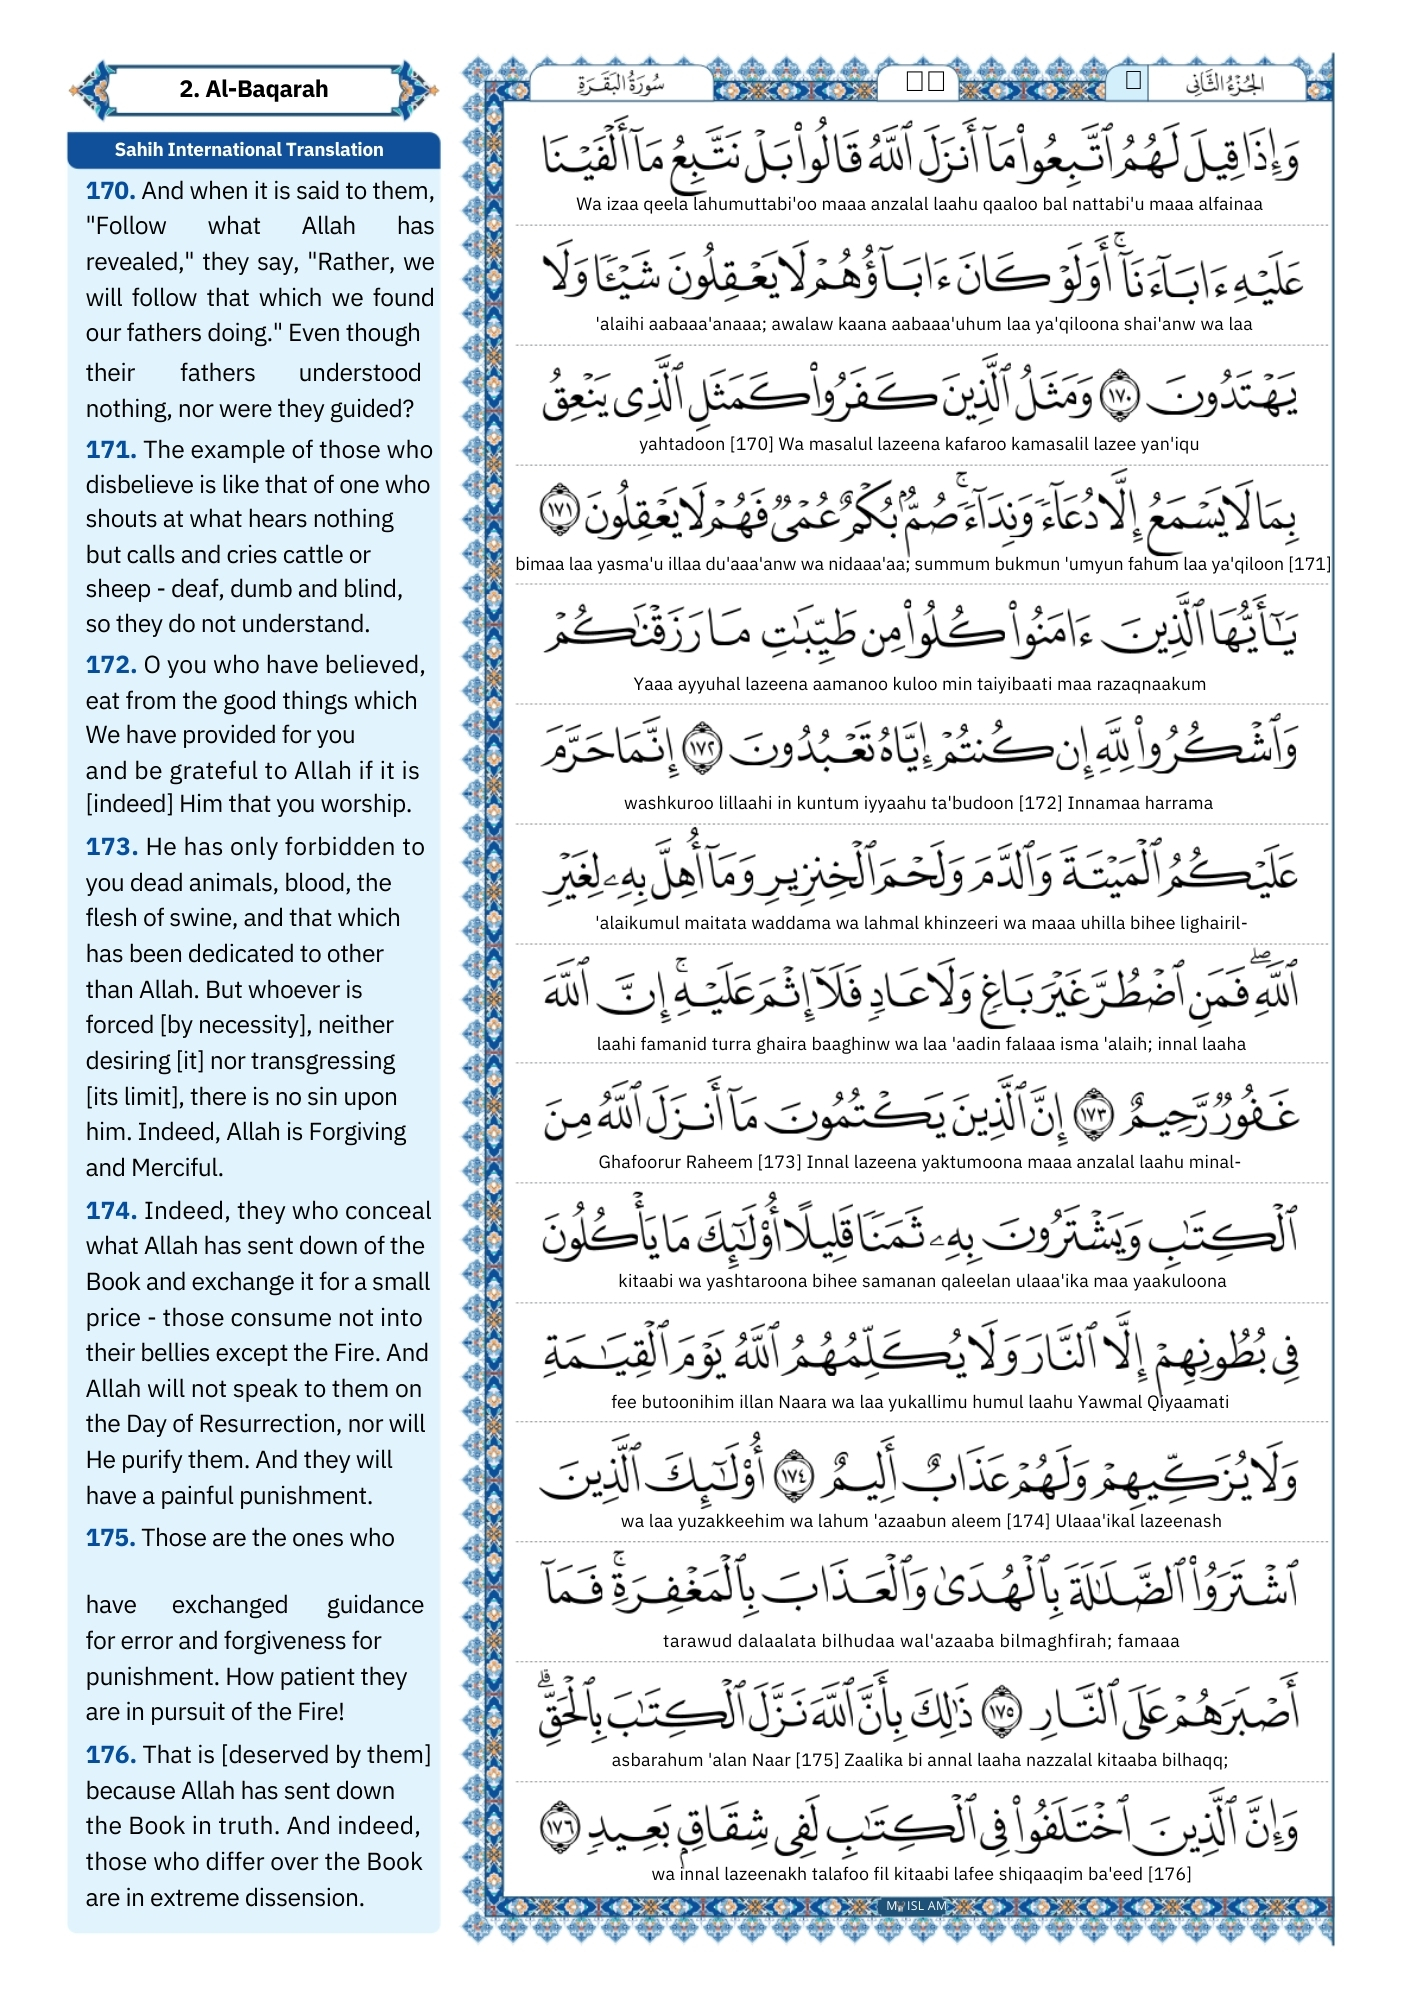 2. Al-Baqarah
Sahih International Translation
170. And when it is said to them,
"Follow what Allah has
revealed," they say, "Rather, we
will follow that which we found
our fathers doing." Even though
their fathers understood
nothing, nor were they guided?
171. The example of those who
disbelieve is like that of one who
shouts at what hears nothing
but calls and cries cattle or
sheep - deaf, dumb and blind,
so they do not understand.
172. O you who have believed,
eat from the good things which
We have provided for you
and be grateful to Allah if it is
[indeed] Him that you worship.
173. He has only forbidden to
you dead animals, blood, the
flesh of swine, and that which
has been dedicated to other
than Allah. But whoever is
forced [by necessity], neither
desiring [it] nor transgressing
[its limit], there is no sin upon
him. Indeed, Allah is Forgiving
and Merciful.
174. Indeed, they who conceal
what Allah has sent down of the
Book and exchange it for a small
price - those consume not into
their bellies except the Fire. And
Allah will not speak to them on
the Day of Resurrection, nor will
He purify them. And they will
have a painful punishment.
175. Those are the ones who
have exchanged guidance
for error and forgiveness for
punishment. How patient they
are in pursuit of the Fire!
176. That is [deserved by them]
because Allah has sent down
the Book in truth. And indeed,
those who differ over the Book
are in extreme dissension.
الجُزْءُ الثَّانِي
سُورَةُ البَقَرَةِ
وَإِذَا قِيلَ لَهُمُ ٱتَّبِعُوا۟ مَآ أَنزَلَ ٱللَّهُ قَالُوا۟ بَلْ نَتَّبِعُ مَآ أَلْفَيْنَا
Wa izaa qeela lahumuttabi'oo maaa anzalal laahu qaaloo bal nattabi'u maaa alfainaa
عَلَيْهِ ءَابَآءَنَآ ۚ أَوَلَوْ كَانَ ءَابَآؤُهُمْ لَا يَعْقِلُونَ شَيْـًٔا وَلَا
'alaihi aabaaa'anaaa; awalaw kaana aabaaa'uhum laa ya'qiloona shai'anw wa laa
يَهْتَدُونَ ١٧٠ وَمَثَلُ ٱلَّذِينَ كَفَرُوا۟ كَمَثَلِ ٱلَّذِى يَنْعِقُ
yahtadoon [170] Wa masalul lazeena kafaroo kamasalil lazee yan'iqu
بِمَا لَا يَسْمَعُ إِلَّا دُعَآءً وَنِدَآءً ۚ صُمٌّۢ بُكْمٌ عُمْىٌ فَهُمْ لَا يَعْقِلُونَ ١٧١
bimaa laa yasma'u illaa du'aaa'anw wa nidaaa'aa; summum bukmun 'umyun fahum laa ya'qiloon [171]
يَـٰٓأَيُّهَا ٱلَّذِينَ ءَامَنُوا۟ كُلُوا۟ مِن طَيِّبَـٰتِ مَا رَزَقْنَـٰكُمْ
Yaaa ayyuhal lazeena aamanoo kuloo min taiyibaati maa razaqnaakum
وَٱشْكُرُوا۟ لِلَّهِ إِن كُنتُمْ إِيَّاهُ تَعْبُدُونَ ١٧٢ إِنَّمَا حَرَّمَ
washkuroo lillaahi in kuntum iyyaahu ta'budoon [172] Innamaa harrama
عَلَيْكُمُ ٱلْمَيْتَةَ وَٱلدَّمَ وَلَحْمَ ٱلْخِنزِيرِ وَمَآ أُهِلَّ بِهِۦ لِغَيْرِ
'alaikumul maitata waddama wa lahmal khinzeeri wa maaa uhilla bihee lighairil-
ٱللَّهِ ۖ فَمَنِ ٱضْطُرَّ غَيْرَ بَاغٍ وَلَا عَادٍ فَلَآ إِثْمَ عَلَيْهِ ۚ إِنَّ ٱللَّهَ
laahi famanid turra ghaira baaghinw wa laa 'aadin falaaa isma 'alaih; innal laaha
غَفُورٌ رَّحِيمٌ ١٧٣ إِنَّ ٱلَّذِينَ يَكْتُمُونَ مَآ أَنزَلَ ٱللَّهُ مِنَ
Ghafoorur Raheem [173] Innal lazeena yaktumoona maaa anzalal laahu minal-
ٱلْكِتَـٰبِ وَيَشْتَرُونَ بِهِۦ ثَمَنًا قَلِيلًا أُو۟لَـٰٓئِكَ مَا يَأْكُلُونَ
kitaabi wa yashtaroona bihee samanan qaleelan ulaaa'ika maa yaakuloona
فِى بُطُونِهِمْ إِلَّا ٱلنَّارَ وَلَا يُكَلِّمُهُمُ ٱللَّهُ يَوْمَ ٱلْقِيَـٰمَةِ
fee butoonihim illan Naara wa laa yukallimu humul laahu Yawmal Qiyaamati
وَلَا يُزَكِّيهِمْ وَلَهُمْ عَذَابٌ أَلِيمٌ ١٧٤ أُو۟لَـٰٓئِكَ ٱلَّذِينَ
wa laa yuzakkeehim wa lahum 'azaabun aleem [174] Ulaaa'ikal lazeenash
ٱشْتَرَوُا۟ ٱلضَّلَـٰلَةَ بِٱلْهُدَىٰ وَٱلْعَذَابَ بِٱلْمَغْفِرَةِ ۚ فَمَآ
tarawud dalaalata bilhudaa wal'azaaba bilmaghfirah; famaaa
أَصْبَرَهُمْ عَلَى ٱلنَّارِ ١٧٥ ذَٰلِكَ بِأَنَّ ٱللَّهَ نَزَّلَ ٱلْكِتَـٰبَ بِٱلْحَقِّ ۗ
asbarahum 'alan Naar [175] Zaalika bi annal laaha nazzalal kitaaba bilhaqq;
وَإِنَّ ٱلَّذِينَ ٱخْتَلَفُوا۟ فِى ٱلْكِتَـٰبِ لَفِى شِقَاقٍۭ بَعِيدٍ ١٧٦
wa innal lazeenakh talafoo fil kitaabi lafee shiqaaqim ba'eed [176]